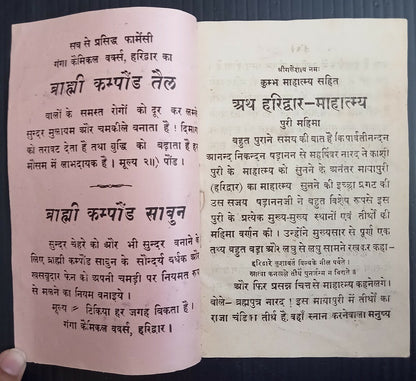 सब से प्रसिद्ध फार्मेसी
गंगा कैमिकल वर्क्स, हरिद्वार का
ब्राह्मी कम्पौंड तैल
बालों के समस्त रोगों को दूर कर लम्बे
सुन्दर मुलायम और चमकीले बनाता है ! दिमाग
को तरावट देता है तथा बुद्धि को बढ़ाता है हर
मौसम में लाभदायक है । मूल्य २॥) पौंड ।
ब्राह्मी कम्पौंड साबुन
सुन्दर चेहरे को और भी सुन्दर बनाने के
लिए ब्राह्मी कम्पौंड साबुन के सौन्दर्य वर्धक और
खुसबूदार फेन को अपनी चमड़ी पर नियमत रूप
से मलने का नियम बनाइये ।
मूल्य टिकिया हर जगह बिकता है ।
गंगा कैमिकल वर्क्स, हरिद्वार ।
श्रीगणेशाय नमः
कुम्भ माहात्म्य सहित
अथ हरिद्वार-माहात्म्य
पुरी महिमा
बहुत पुराने समय की बात है कि पार्वतीनन्दन
आनन्द निकन्दन षड़ानन से महर्षिवर नारद ने काशी
पुरी के माहात्म्य को सुनने के अनंतर मायापुरी
(हरिद्वार) का माहात्म्य सुनने की इच्छा प्रगट की
उस समय षड़ाननजी ने बहुत विशेष रूपसे इस
पुरी के प्रत्येक मुख्य-मुख्य स्थानों एवं तीर्थों की
महिमा वर्णन की । उन्होंने मुख्यसार से पूर्ण एक
तथ्य बहुत बड़ा और लघु से लघु सामने रखकर कहा-
हरिद्वारे कुशावर्ते विल्वके नील पर्वते ।
स्नात्वा कनखले तीर्थे पुनर्जन्म न विद्यते ॥
और फिर प्रसन्न चित्त से माहात्म्य कहने लगे ।
बोले- ब्रह्मपुत्र नारद ! इस मायापुरी में तीर्थों का
राजा चंडिका तीर्थ है, वहाँ स्नान करनेवाला मनुष्य